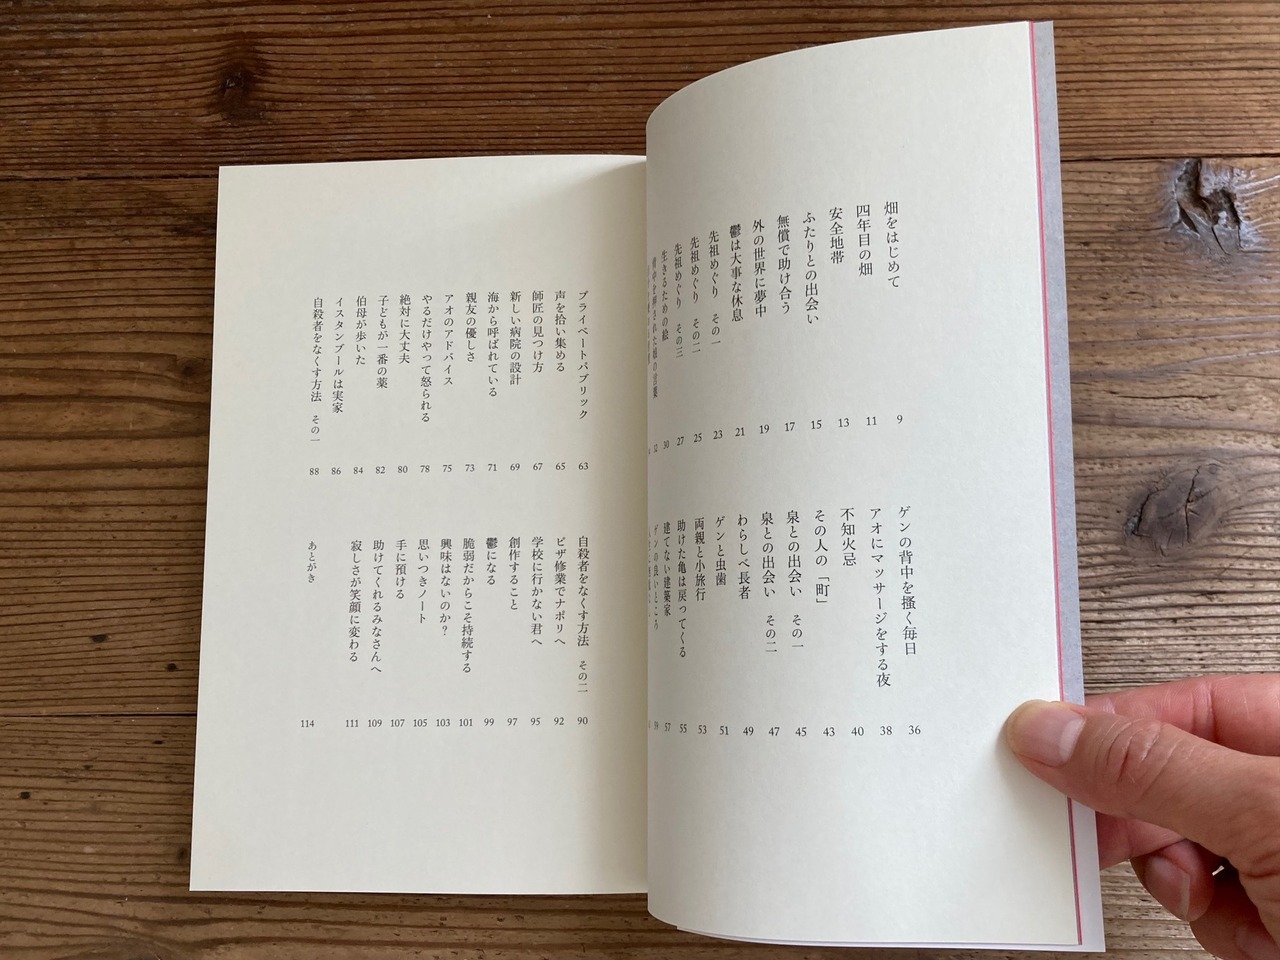 畑をはじめて 9
四年目の畑 11
安全地帯 13
ふたりとの出会い 15
無償で助け合う 17
外の世界に夢中 19
鬱は大事な休息 21
先祖めぐり その一 23
先祖めぐり その二 25
先祖めぐり その三 27
生きるための絵 30
背中を押された娘の言葉 32
ゲンの背中を搔く毎日 36
アオにマッサージをする夜 38
不知火忌 40
その人の「町」 43
泉との出会い その一 45
泉との出会い その二 47
わらしべ長者 49
ゲンと虫歯 51
両親と小旅行 53
助けた亀は戻ってくる 55
建てない建築家 57
ゲンの良いところ 59
プライベートパブリック 63
声を拾い集める 65
師匠の見つけ方 67
新しい病院の設計 69
海から呼ばれている 71
親友の優しさ 73
アオのアドバイス 75
やるだけやって怒られる 78
絶対に大丈夫 80
子どもが一番の薬 82
伯母が歩いた 84
イスタンブールは実家 86
自殺者をなくす方法 その一 88
自殺者をなくす方法 その二 90
ピザ修業でナポリへ 92
学校に行かない君へ 95
創作すること 97
鬱になる 99
脆弱だからこそ持続する 101
興味はないのか? 103
思いつきノート 105
手に預ける 107
助けてくれるみなさんへ 109
寂しさが笑顔に変わる 111
あとがき 114